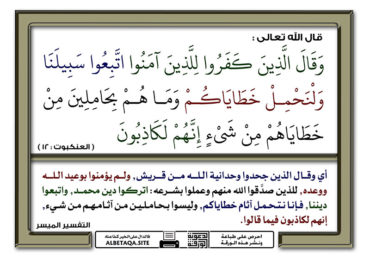 قال الله تعالى :
وَقَالَ الَّذِينَ كَفَرُوا لِلَّذِينَ آمَنُوا اتَّبِعُوا سَبِيلَنَا
وَلْنَحْمِلْ خَطَايَاكُمْ وَمَا هُمْ بِحَامِلِينَ مِنْ
خَطَايَاهُمْ مِنْ شَيْءٍ إِنَّهُمْ لَكَاذِبُونَ
( العنكبوت : ١٢ )
أي وقال الذين جحدوا وحدانية الله من قريش، ولم يؤمنوا بوعيد الله
ووعده، للذين صدَّقوا الله منهم وعملوا بشرعه : اتركوا دين محمد، واتبعوا
ديننا، فإنا نتحمل آثام خطاياكم، وليسوا بحاملين من آثامهم من شيء،
إنهم لكاذبون فيما قالوا.
التفسير الميسر
احرص على طباعة
ونشر هذه الورقة
فالدال على الخير كفاعله
ALBETAQA.SITE